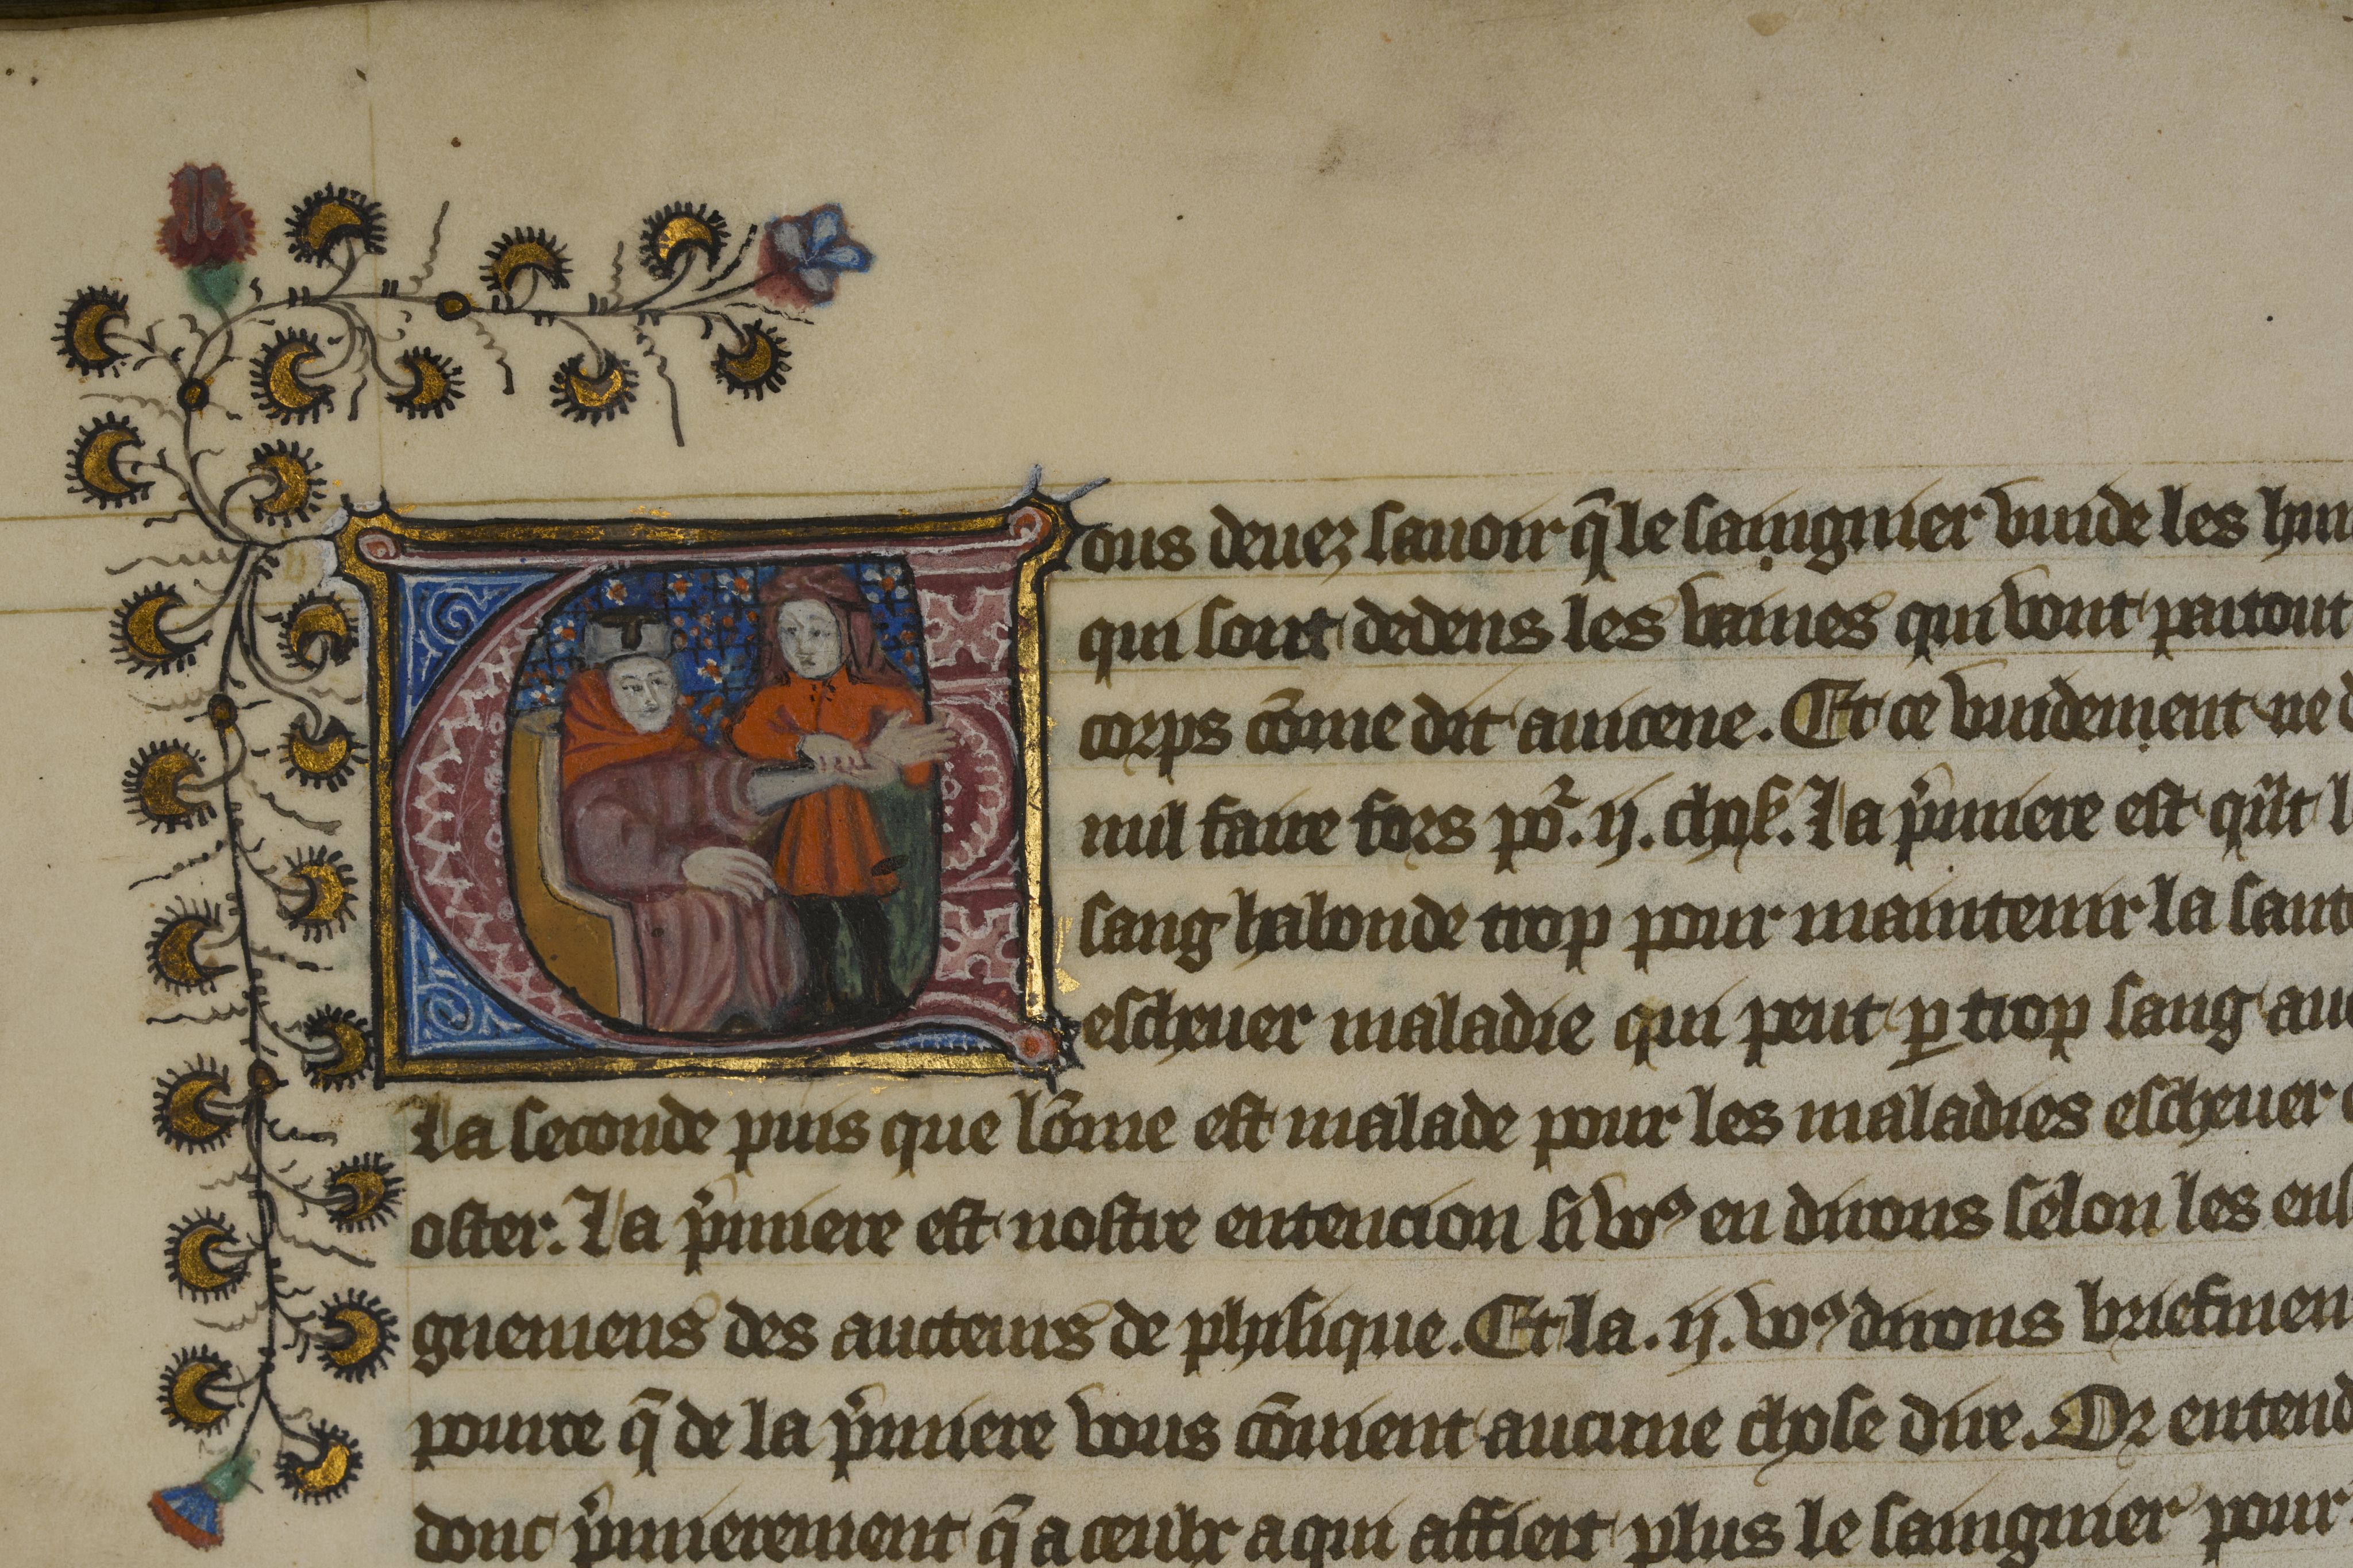 ous deuez sauoir q̄ le saingnier vuide les hu
qui sont dedens les vaines qui vont partout
corps cōme dit auicene. Et ce vuidement ne d
nul faire fors po᷑. ij. choẜ. La p̍miere est q̄nt l
sang habonde trop pour maintenir la sante
escheuer maladie qui peut ꝑ trop sang aue
La seconde puis que lōme est malade pour les maladies escheuer
oster. La p̍miere est nostre entencion si voꝰ en dirons selon les ens
gnemens des aucteurs de phisique. Et la. ij. voꝰ dirons briefmen
pource q̄ de la p̍miere vous cōuient aucune chose dire. Or entend
donc p̍mierement q̄ a ceulx a qui affiert plus le saingnier pour